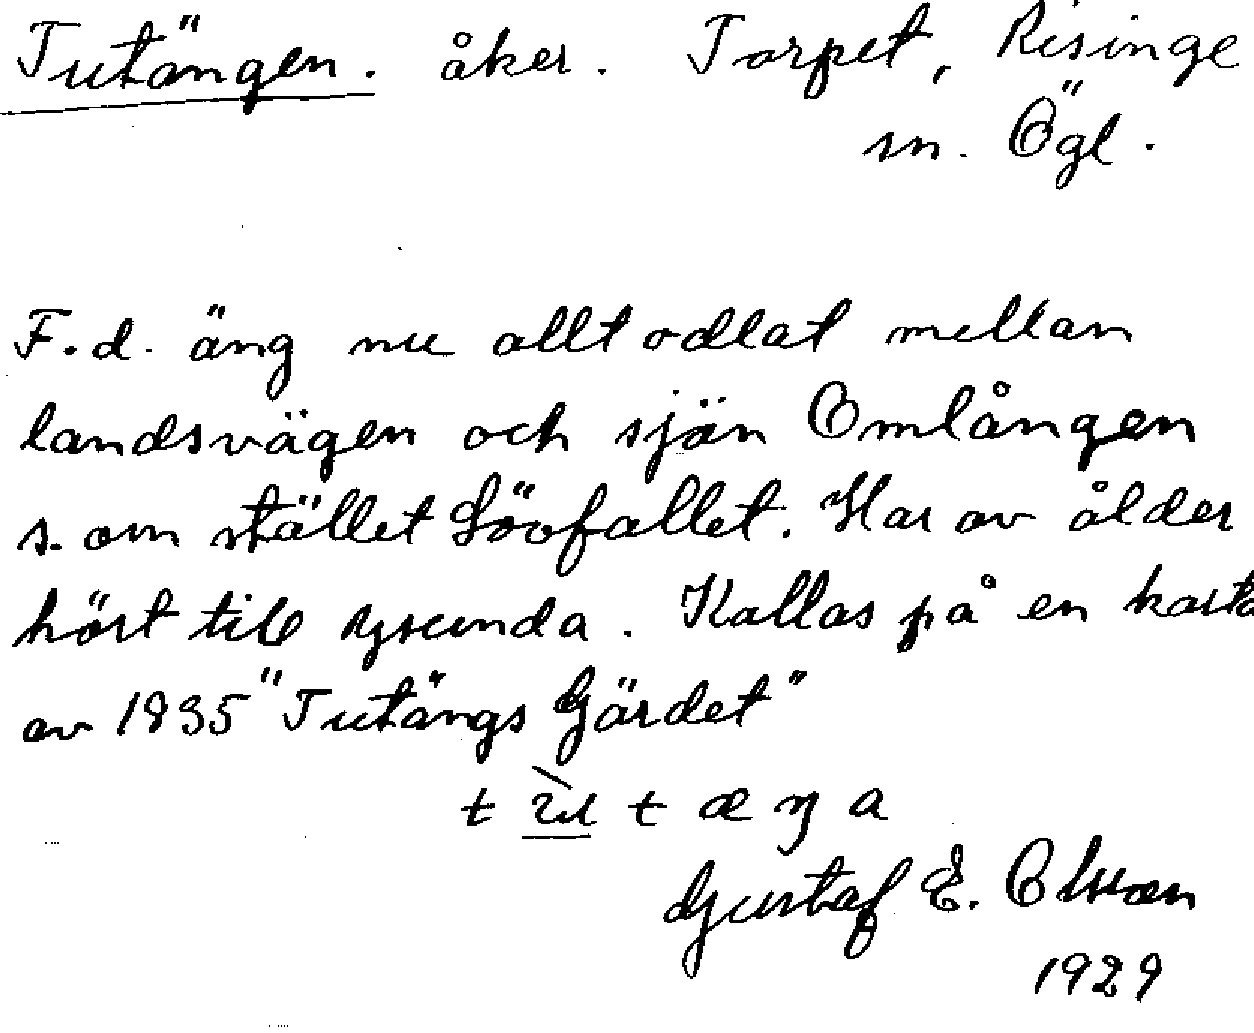 Tutängen. åker. Torpet, Risinge
sn. Ögl.
F.d. äng nu allt odlat mellan
landsvägen och sjön Omlången
s. om stället Lövfallet. Har av ålder
hört till Lysunda. Kallas på en karta
av 1835 "Tutängs Gärdet"
t ù t æ ŋ a
Gustaf E. Olsson
1929